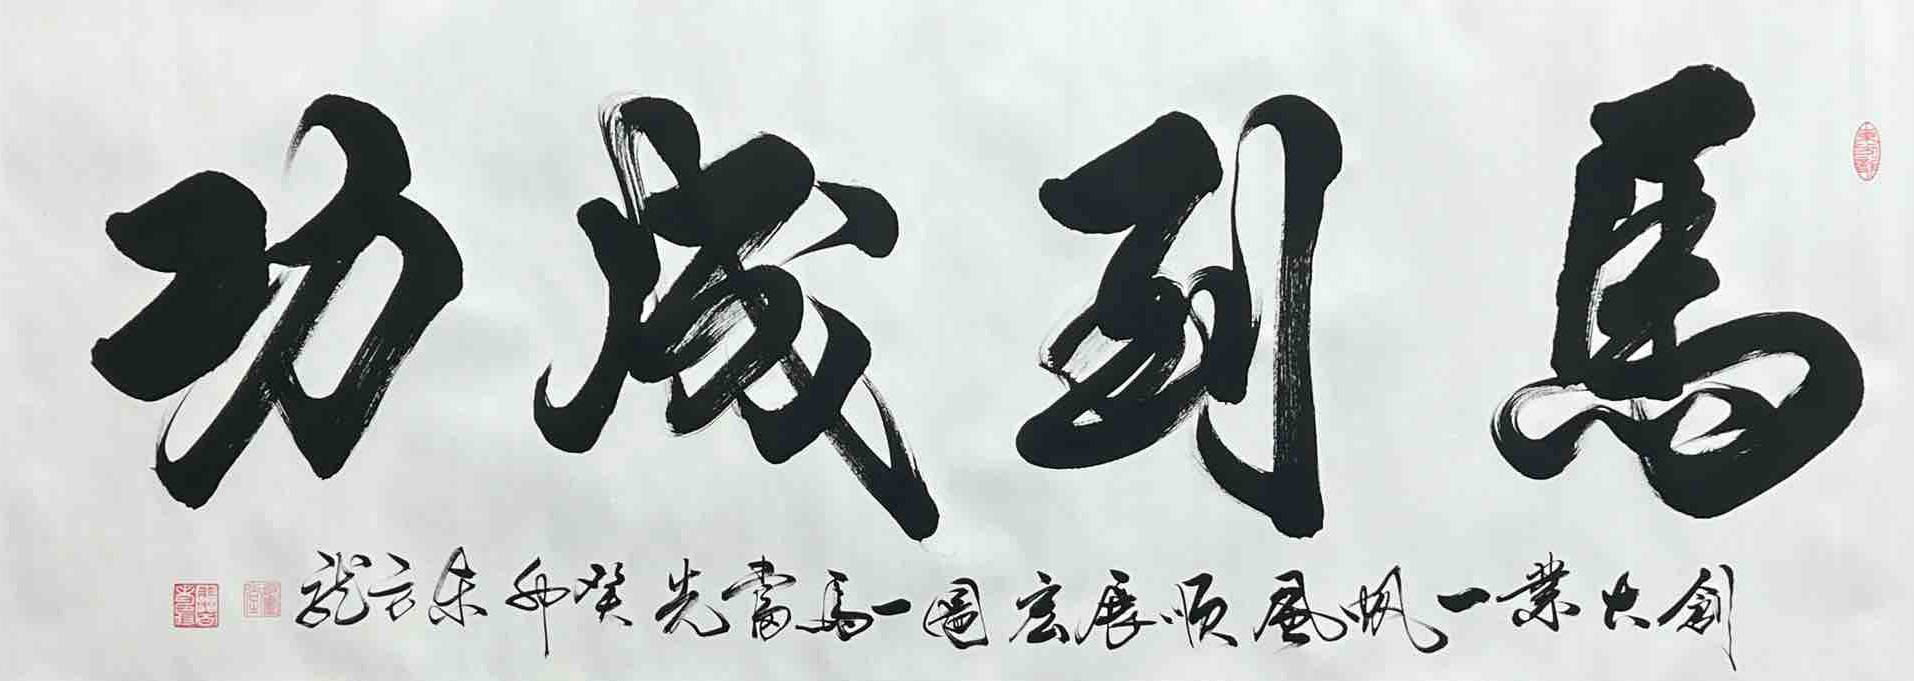 馬到成功
創大業一帆風順展宏圖一馬當先癸卯朱云龍